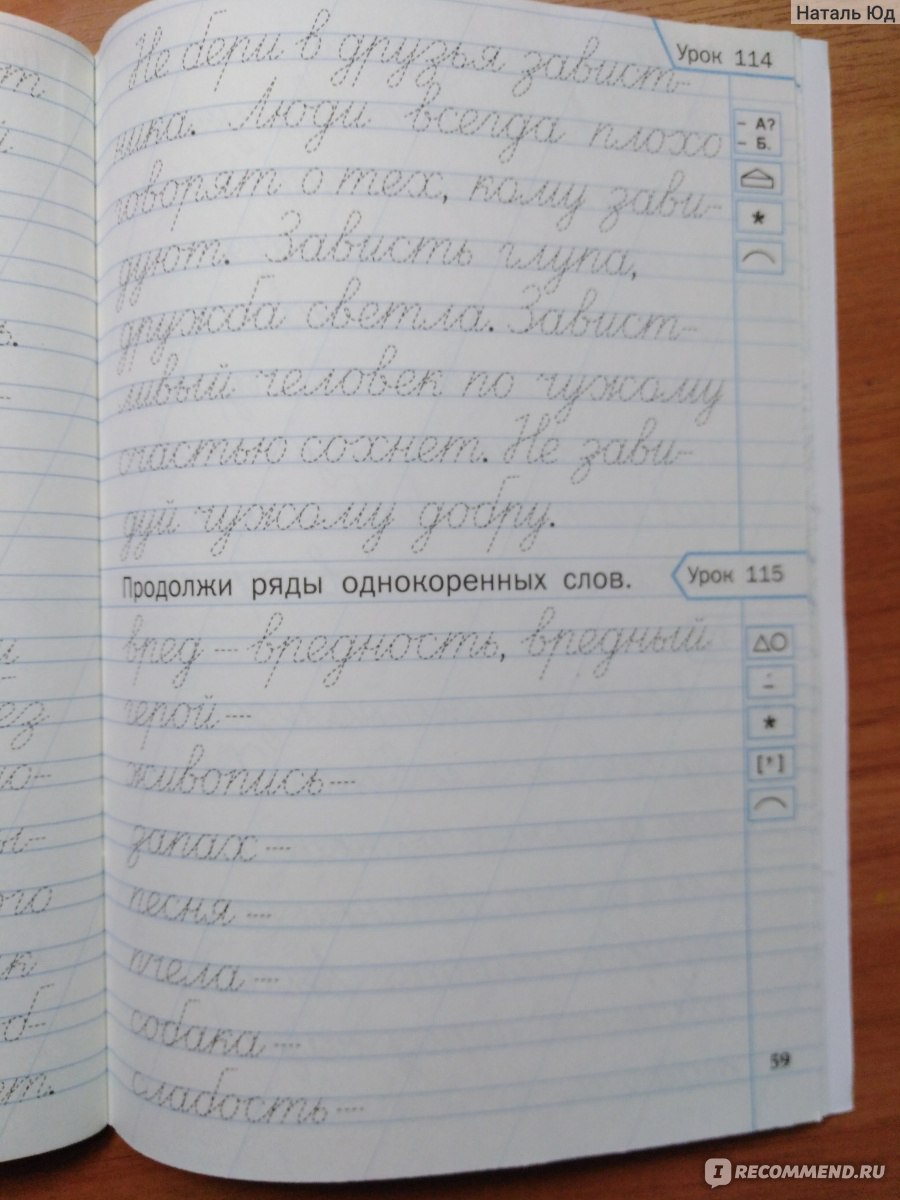 Наталь Юд
Не бери в друзья завист-
Урок 114
ника. Люди всегда плохо
- А?
- Б.
говорят о тех, кому зави-
*
дуют. Зависть глупа,
дружба светла. Завист-
ливый человек по чужому
счастью сохнет. Не зави-
дуй чужому добру.
Продолжи ряды однокоренных слов.
Урок 115
вред — вредность, вредный
герой —
*
живопись —
[']
запах —
песня —
пчела —
собака —
59
сладость —
IRECOMMEND.RU